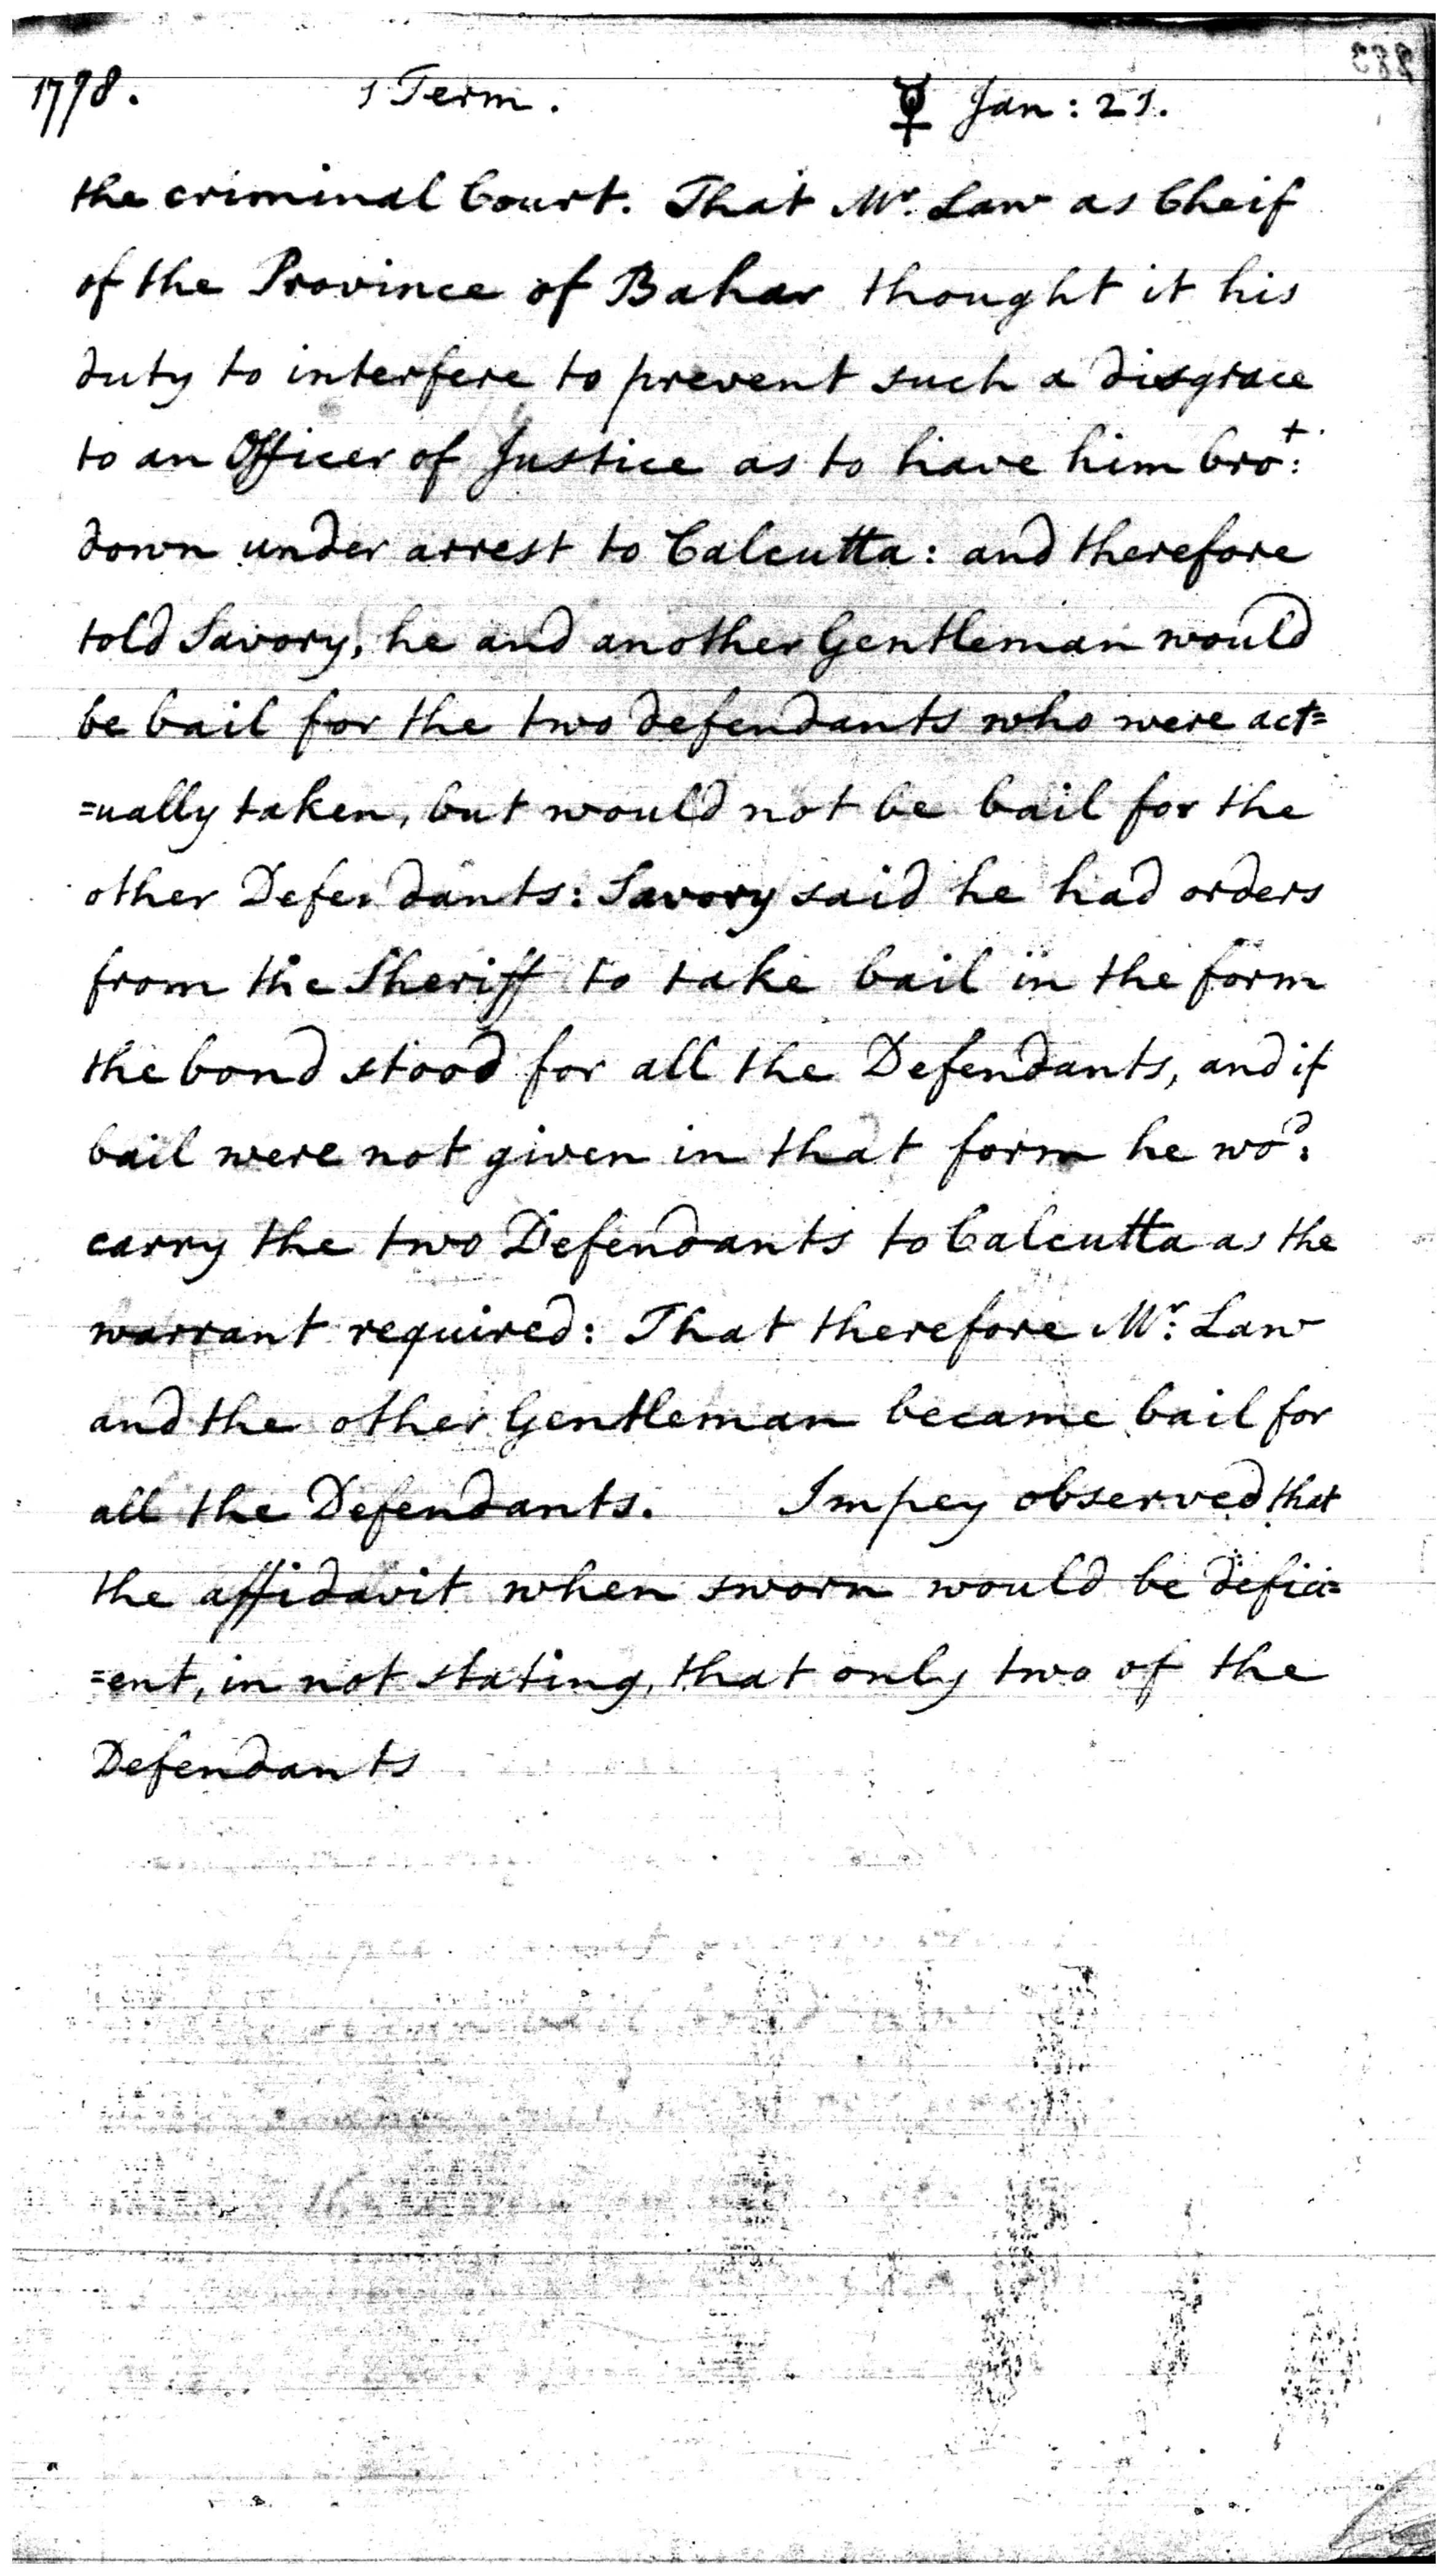 1778. 1 Term. ☿ Jan: 21.
the criminal Court. That Mr. Law as Cheif
of the Province of Bahar thought it his
duty to interfere to prevent such a disgrace
to an Officer of Justice as to have him brot:
down under arrest to Calcutta: and therefore
told Savory, he and another Gentleman would
be bail for the two defendants who were act=
=ually taken, but would not be bail for the
other Defendants: Savory said he had orders
from the Sheriff to take bail in the form
the bond stood for all the Defendants, and if
bail were not given in that form he wod:
carry the two Defendants to Calcutta as the
warrant required: That therefore Mr: Law
and the other Gentleman became bail for
all the Defendants. Impey observed that
the affidavit when sworn would be defici=
=ent, in not stating, that only two of the
Defendants